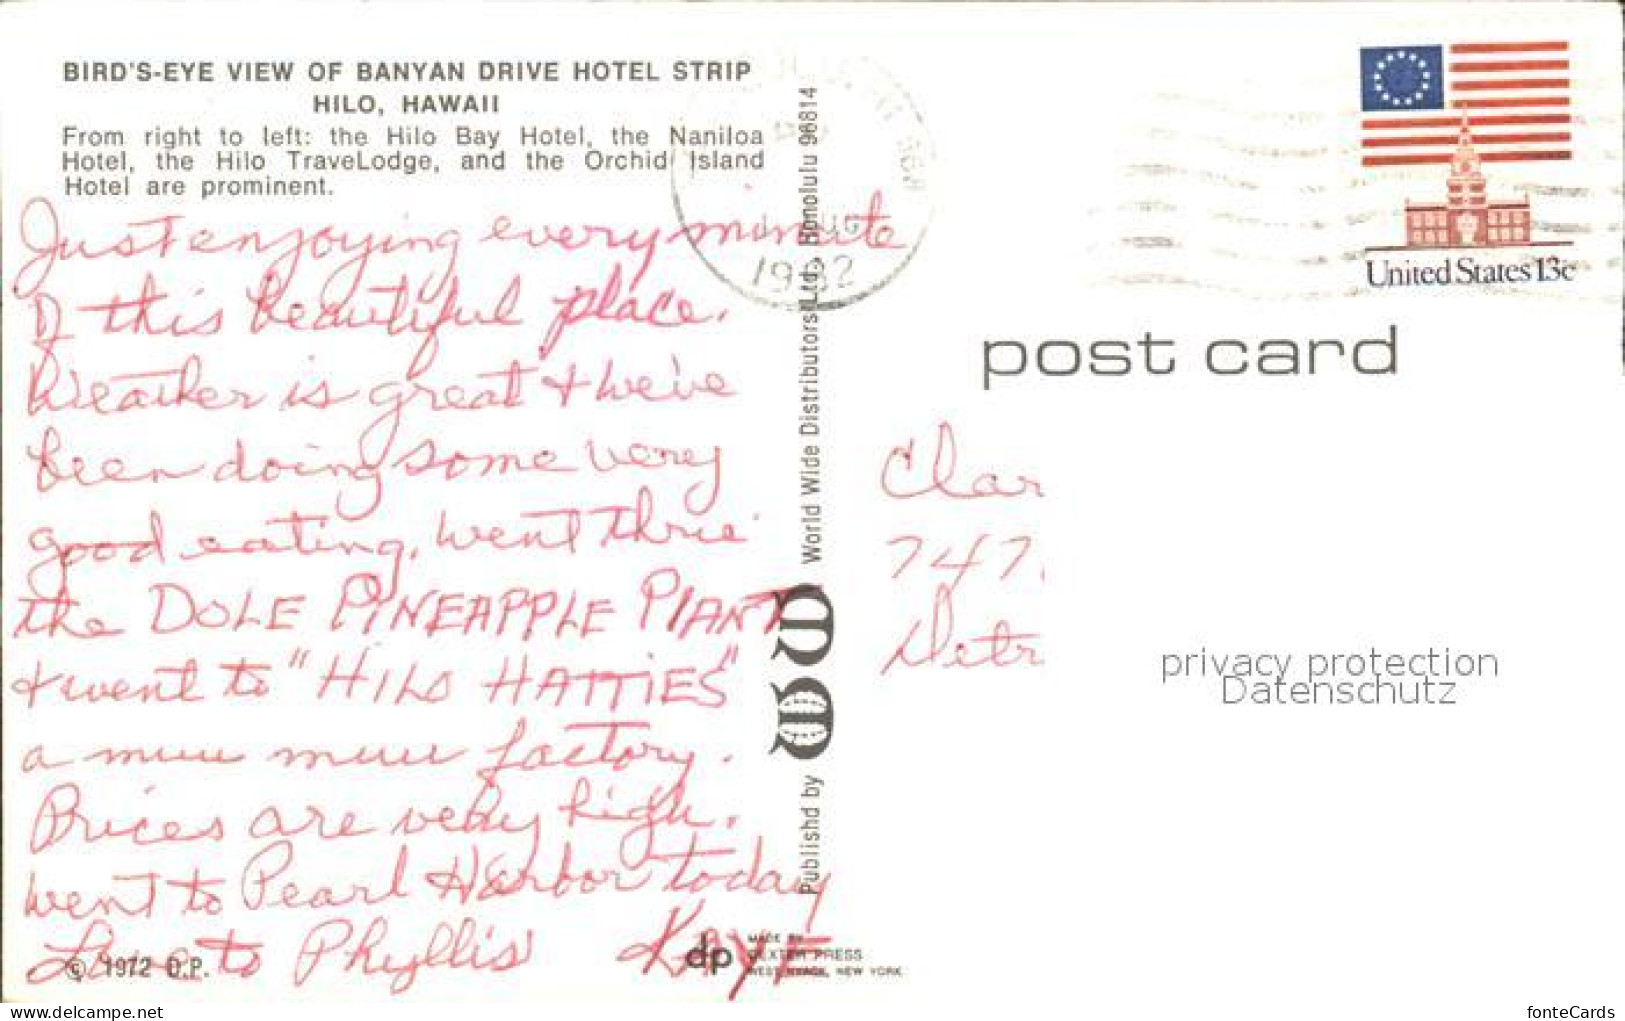 BIRD'S-EYE VIEW OF BANYAN DRIVE HOTEL STRIP
HILO, HAWAII
From right to left: the Hilo Bay Hotel, the Naniloa
Hotel, the Hilo TraveLodge, and the Orchid Island
Hotel are prominent.
Just enjoying every minute
of this beautiful place.
Weather is great & we've
been doing some very
good eating, went thru
the DOLE PINEAPPLE PLANT
& went to "HILO HATTIES"
a muu muu factory.
Prices are very high.
Went to Pearl Harbor today
Love to Phyllis KAYE
© 1972 D.P.
dp
MADE BY
DEXTER PRESS
WEST NYACK, NEW YORK
Publishd by
World Wide Distributors Ltd., Honolulu 96814
1982
United States 13c
post card
Clar
747
Detr
privacy protection
Datenschutz
www.delcampe.net
fonteCards